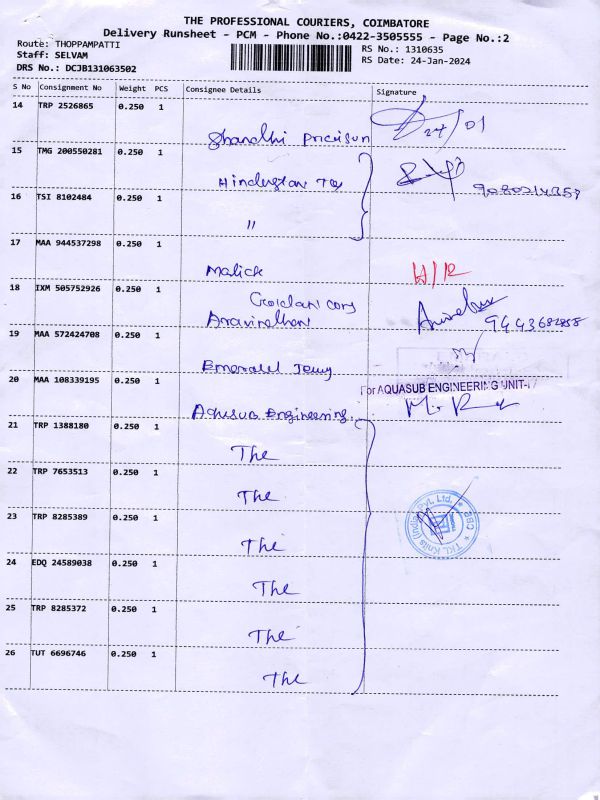 THE PROFESSIONAL COURIERS, COIMBATORE
Delivery Runsheet - PCM - Phone No.:0422-3505555 - Page No.:2
Route: THOPPAMPATTI
RS No.: 1310635
Staff: SELVAM
RS Date: 24-Jan-2024
DRS No.: DCJB131063502
S No Consignment No Weight PCS Consignee Details Signature
14 TRP 2526865 0.250 1
24/01
15 TMG 200550281 0.250 1
16 TSI 8102484 0.250 1
"
17 MAA 944537298 0.250 1
Malick
18 IXM 505752926 0.250 1
19 MAA 572424708 0.250 1
20 MAA 108339195 0.250 1
For AQUASUB ENGINEERING UNIT-
Engineering
21 TRP 1388180 0.250 1
The
22 TRP 7653513 0.250 1
The
23 TRP 8285389 0.250 1
The
24 EDQ 24589038 0.250 1
The
25 TRP 8285372 0.250 1
The
26 TUT 6696746 0.250 1
The